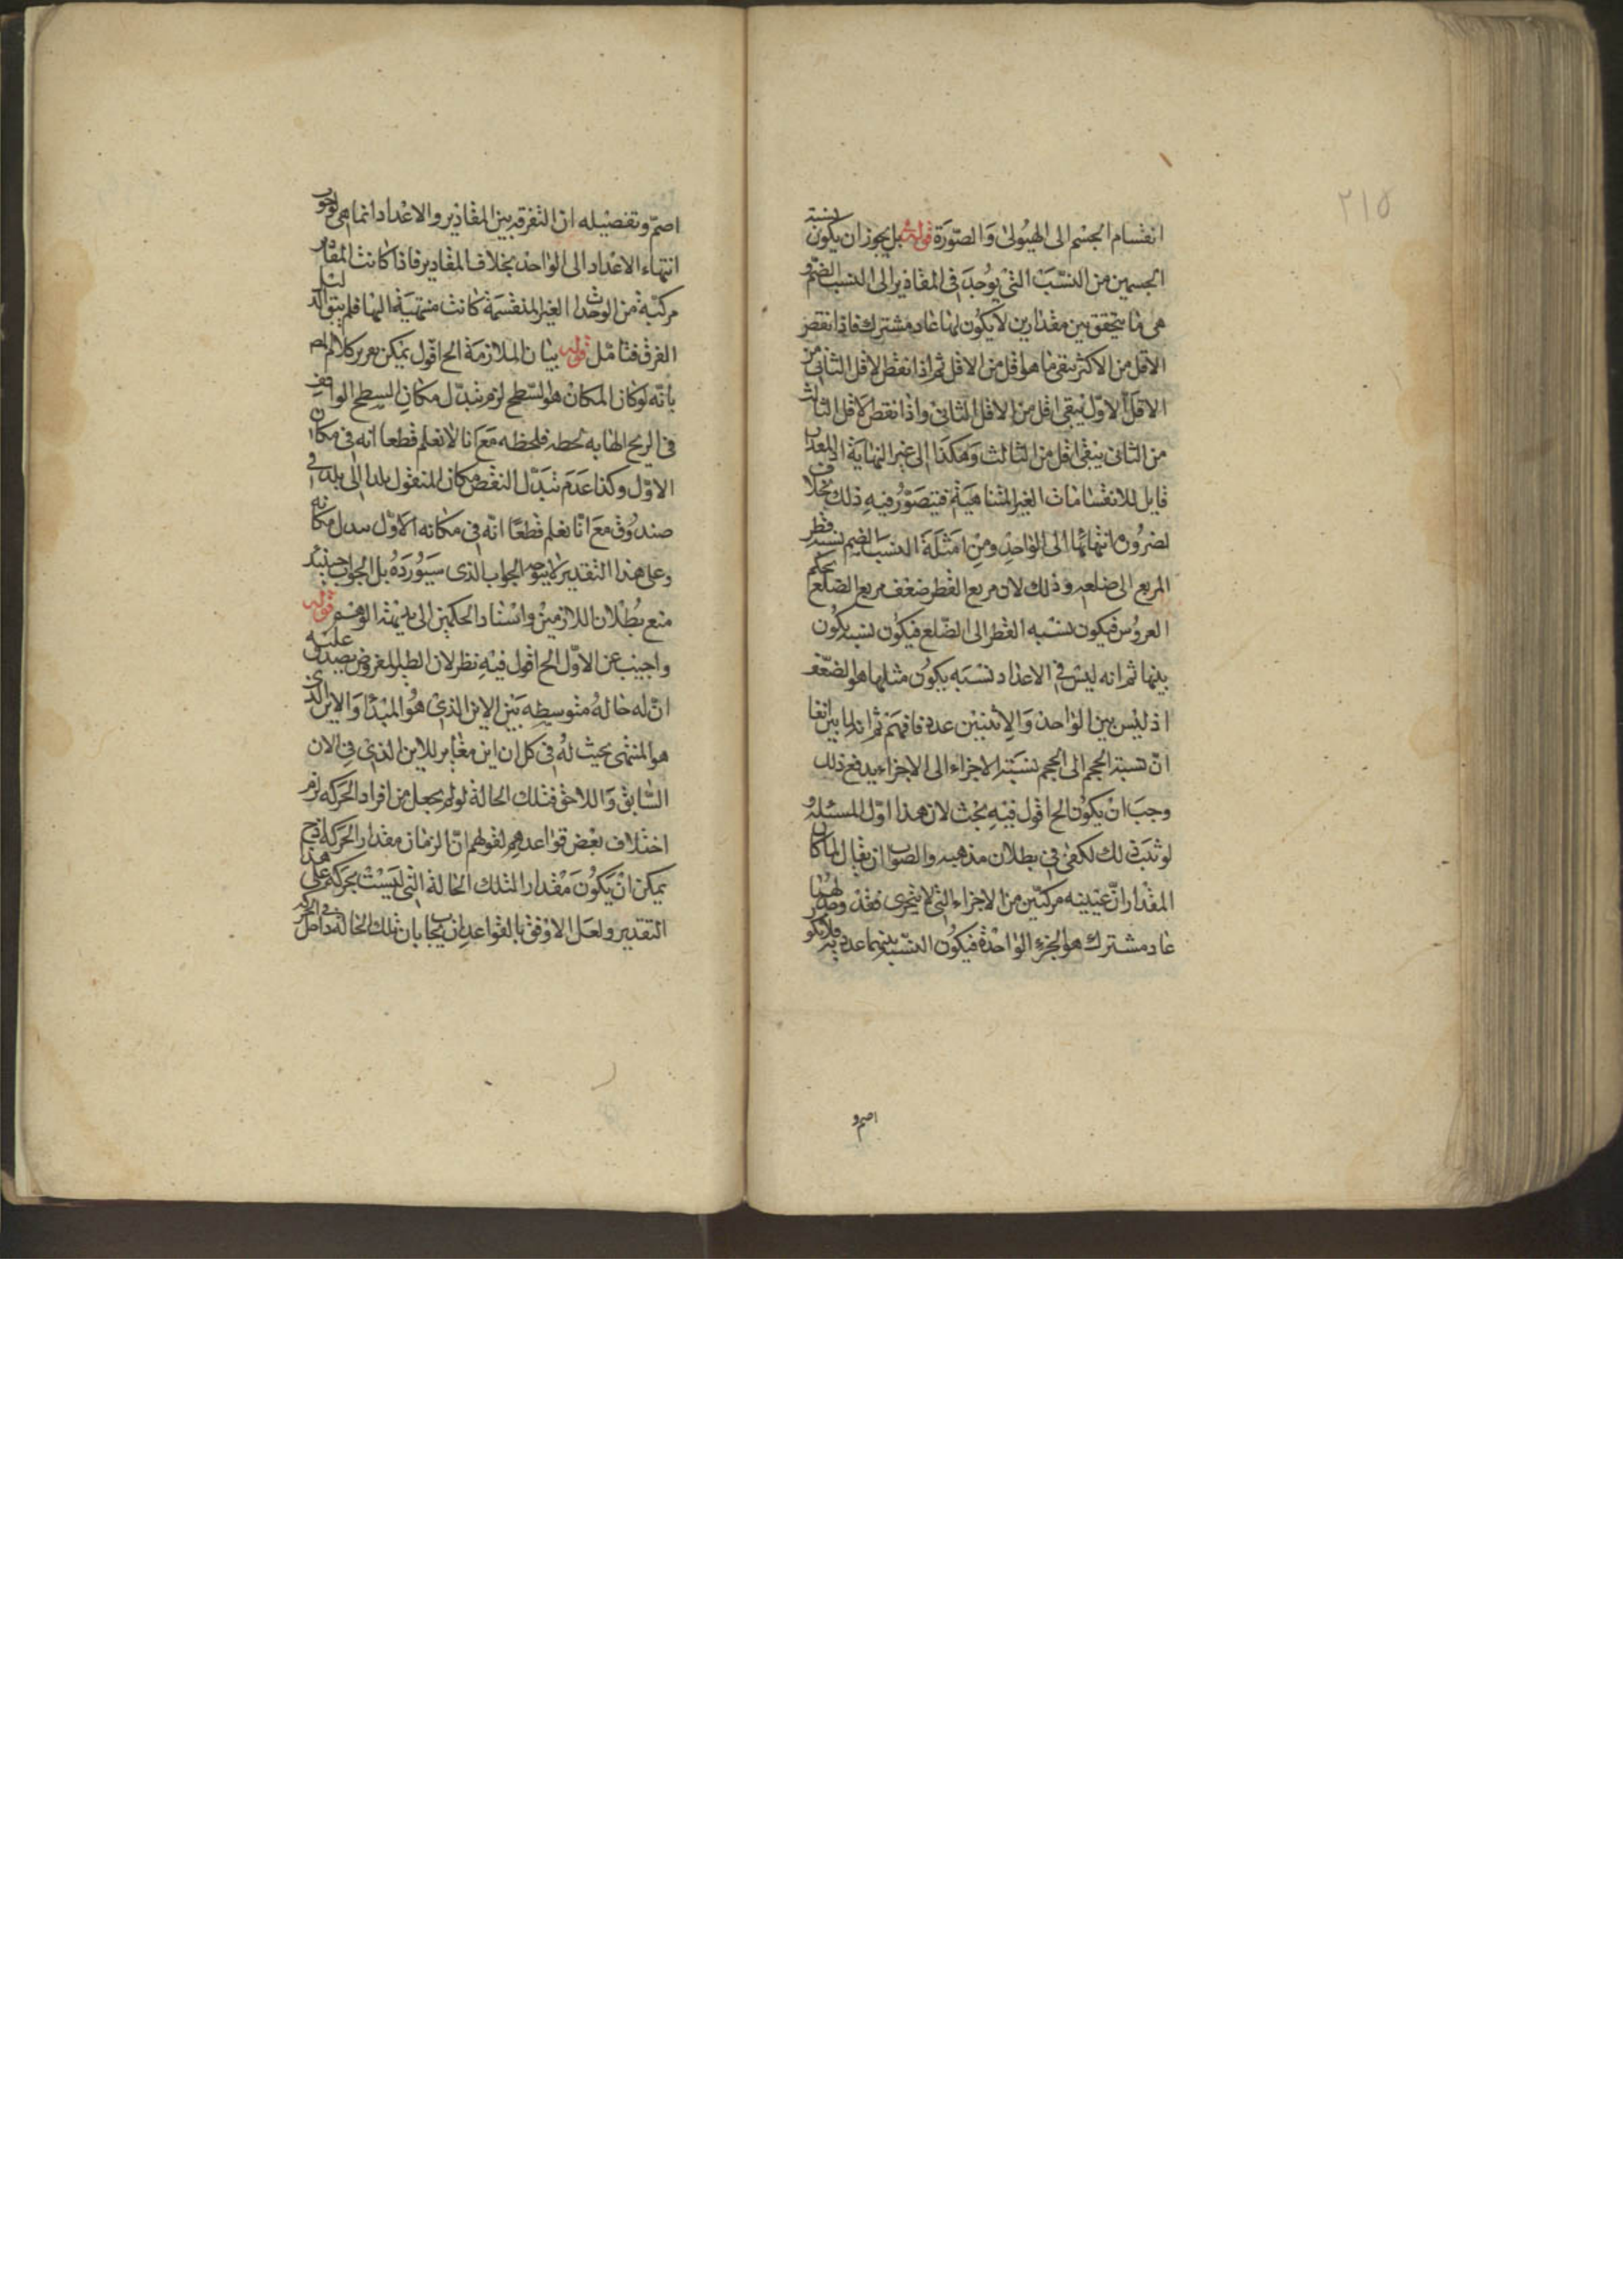 ٢١٥
انقسام الجسم الى الهيولى والصورة قوله بل يجوز ان يكون نسبة
الجسمين من النسب التى يوجد فى المقادير الى النسب الصم و
هى ما يتحقق بين مقدارين لا يكون لهما عاد مشترك فاذا نقص
الاقل من الاكثر يبقى ما هو اقل من الاقل ثم اذا نقص الاقل الثانى من
الاقل الاول يبقى اقل من الاقل الثانى واذا نقص الاقل الثالث
من الثانى يبقى اقل من الثالث وهكذا الى غير النهاية اذ المقدار
قابل للانقسامات الغير المتناهية فيتصور فيه ذلك بخلاف
لضرورة انتهائها الى الواحد ومن امثلة النسب الصم نسبة قطر
المربع الى ضلعه وذلك لان مربع القطر ضعف مربع الضلع بحكم
العروس فيكون نسبة القطر الى الضلع فيكون نسبة يكون
بينها ثم انه ليس فى الاعداد نسبة يكون مثلها هو الضعف
اذ ليس بين الواحد والاثنين عدد فافهم ثم انه لما بين انفا
ان نسبة الحجم الى الحجم نسبة الاجزاء الى الاجزاء يدفع ذلك
وجب ان يكون الخ اقول فيه بحث لان هذا اول المسئلة و
لو ثبت ذلك لكفى فى بطلان مذهبه والصواب ان يقال لما كان
المقداران عينيه مركبين من الاجزاء التى لا يتجزى فقد وجد لهما
عاد مشترك هو الجزء الواحدة فيكون النسبة بينهما عددية فلا يكو
اصم و
اصم وتفصيله ان التفرقة بين المقادير والاعداد انما هى لوجوب
انتهاء الاعداد الى الواحد بخلاف المقادير فاذا كانت المقادير
مركبة من الوحدات الغير المنقسمة كانت منتهية اليها فلم يبق
الفرق فتامل قوله بيان الملازمة الخ اقول يمكن تحرير كلام المص
بانه لو كان المكان هو السطح لزم تبدل مكان السطح الواقف
فى الريح الهابة لحظة فلحظة مع انا لا نعلم قطعا انه فى مكان
الاول وكذا عدم تبدل النقض مكان المنقول بلدا الى بلد فى
صندوق مع انا نعلم قطعا انه فى مكانه الاول تبدل مكانه
وعلى هذا التقدير لا يتوجه الجواب الذى سيورده بل الجواب حينئذ
منع بطلان اللازمين واسناد الحكمين الى بديهة الوهم قوله
واجيب عن الاول الخ اقول فيه نظر لان الطير المفروض يصدق عليه
ان له حالة متوسطة بين الاين الذى هو المبدأ والاين الذى
هو المنتهى بحيث له فى كل ان اين مغاير للاين الذى فى الان
السابق واللاحق فتلك الحالة لو لم يجعل من افراد الحركة لزم
اختلاف بعض قواعدهم لقولهم ان الزمان مقدار الحركة اذ ح
يمكن ان يكون مقدارا لتلك الحالة التى ليست بحركة على هذا
التقدير ولعل الاوفق بالقواعد ان يجاب بان تلك الحالة داخل فى الحركة